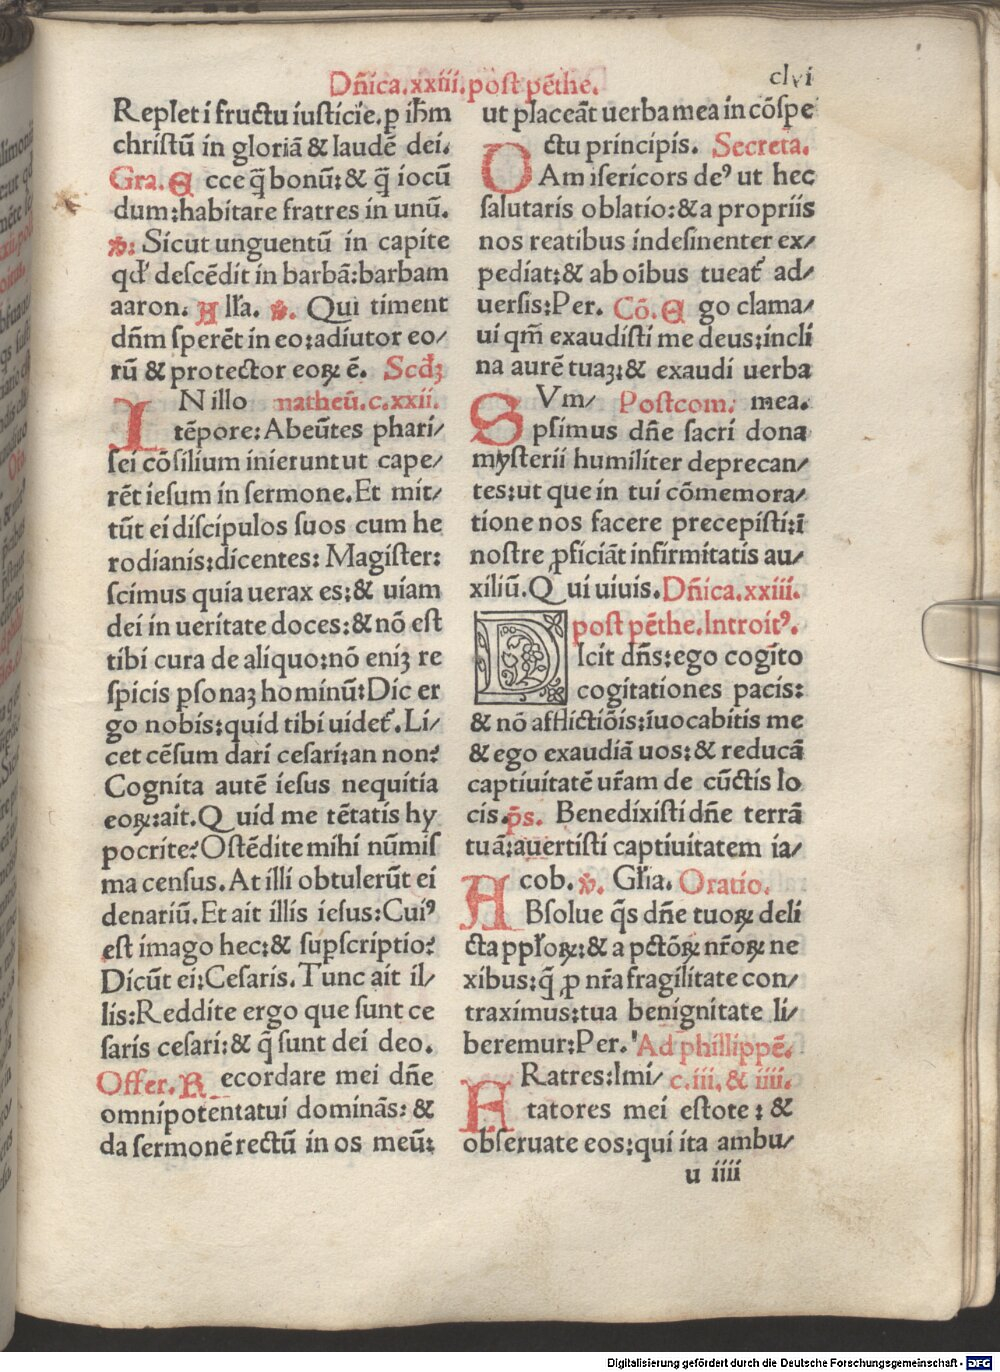 Dn̄ica.xxiii.post pe̅the.
clvi
Repleti fructu iusticie.p ihm̄
christū in gloriā & laudē dei.
Gra. E cce q̄ bonū:& q̄ iocū
dum:habitare fratres in unū.
℣. Sicut unguentū in capite
qd' descēdit in barbā:barbam
aaron. A ll'a. ℣. Qui timent
dn̄m sperēt in eo:adiutor eo/
rū & protector eoꝝ ē. Scd̄ꝫ
I N illo matheū.c.xxii.
tēpore:Abeūtes phari/
sei cōsilium inierunt ut cape/
rēt iesum in sermone.Et mit/
tūt ei discipulos suos cum he
rodianis:dicentes: Magister:
scimus quia uerax es:& uiam
dei in ueritate doces:& nō est
tibi cura de aliquo:nō eniꝫ re
spicis psonaꝫ hominū:Dic er
go nobis:quid tibi uidet᷑.Li/
cet cēsum dari cesari:an non?
Cognita autē iesus nequitia
eoꝝ:ait.Quid me tētatis hy
pocrite?Ostēdite mihi nūmis
ma census.At illi obtulerūt ei
denariū.Et ait illis iesus:Cuiꝰ
est imago hec:& supscriptio?
Dicūt ei:Cesaris.Tunc ait il/
lis:Reddite ergo que sunt ce
saris cesari:& q̄ sunt dei deo.
Offer. R ecordare mei dn̄e
omnipotentatui dominās: &
da sermonē rectū in os meū:
ut placeāt uerba mea in cōspe
ctu principis. Secreta.
O Am isericors deꝰ ut hec
salutaris oblatio:& a propriis
nos reatibus indesinenter ex/
pediat:& ab oibus tueat᷑ ad/
uersis:Per. Cō. E go clama/
ui qm̄ exaudisti me deus:incli
na aurē tuaꝫ:& exaudi uerba
S Vm/ Postcom. mea.
psimus dn̄e sacri dona
mysterii humiliter deprecan/
tes:ut que in tui cōmemora/
tione nos facere precepisti:ī
nostre ꝓficiāt infirmitatis au/
xiliū.Qui uiuis.Dn̄ica.xxiii.
post pe̅the.Introitꝰ.
D Icit dn̄s:ego cogito
cogitationes pacis:
& nō afflictiōis:īuocabitis me
& ego exaudiā uos:& reducā
captiuitatē ur̄am de cūctis lo
cis.p̄s. Benedixisti dn̄e terrā
tuā:auertisti captiuitatem ia/
cob. ℣. Gl'ia. Oratio.
A Bsolue q̄s dn̄e tuoꝝ deli
cta pploꝝ:& a pctōꝝ nr̄oꝝ ne
xibus:q̄ ꝓ nr̄a fragilitate con/
traximus:tua benignitate li/
beremur:Per. Ad phillippē.
F Ratres:Imi/ c.iii. & iiii.
tatores mei estote: &
obseruate eos:qui ita ambu/
u iiii
Digitalisierung gefördert durch die Deutsche Forschungsgemeinschaft - DFG